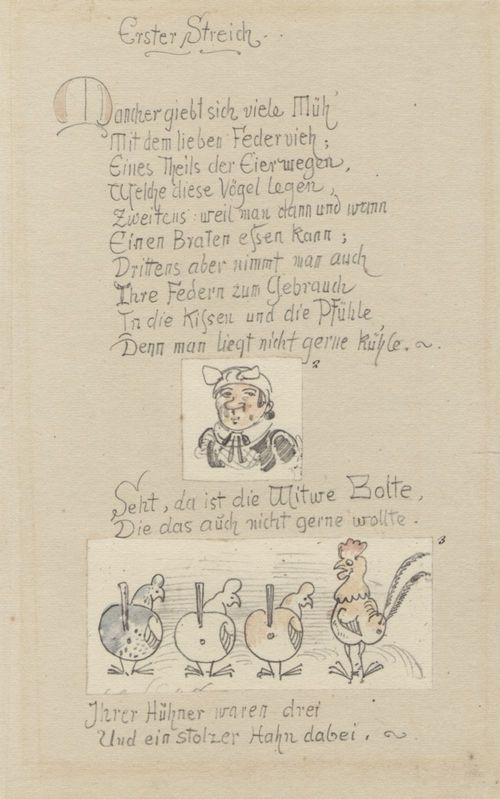 Erster Streich.
Mancher giebt sich viele Müh'
Mit dem lieben Federvieh;
Eines Theils der Eier wegen,
Welche diese Vögel legen,
Zweitens: weil man dann und wann
Einen Braten essen kann;
Drittens aber nimmt man auch
Ihre Federn zum Gebrauch
In die Kissen und die Pfühle,
Denn man liegt nicht gerne kühle.
2
Seht, da ist die Witwe Bolte,
Die das auch nicht gerne wollte.
3
Ihrer Hühner waren drei
Und ein stolzer Hahn dabei.